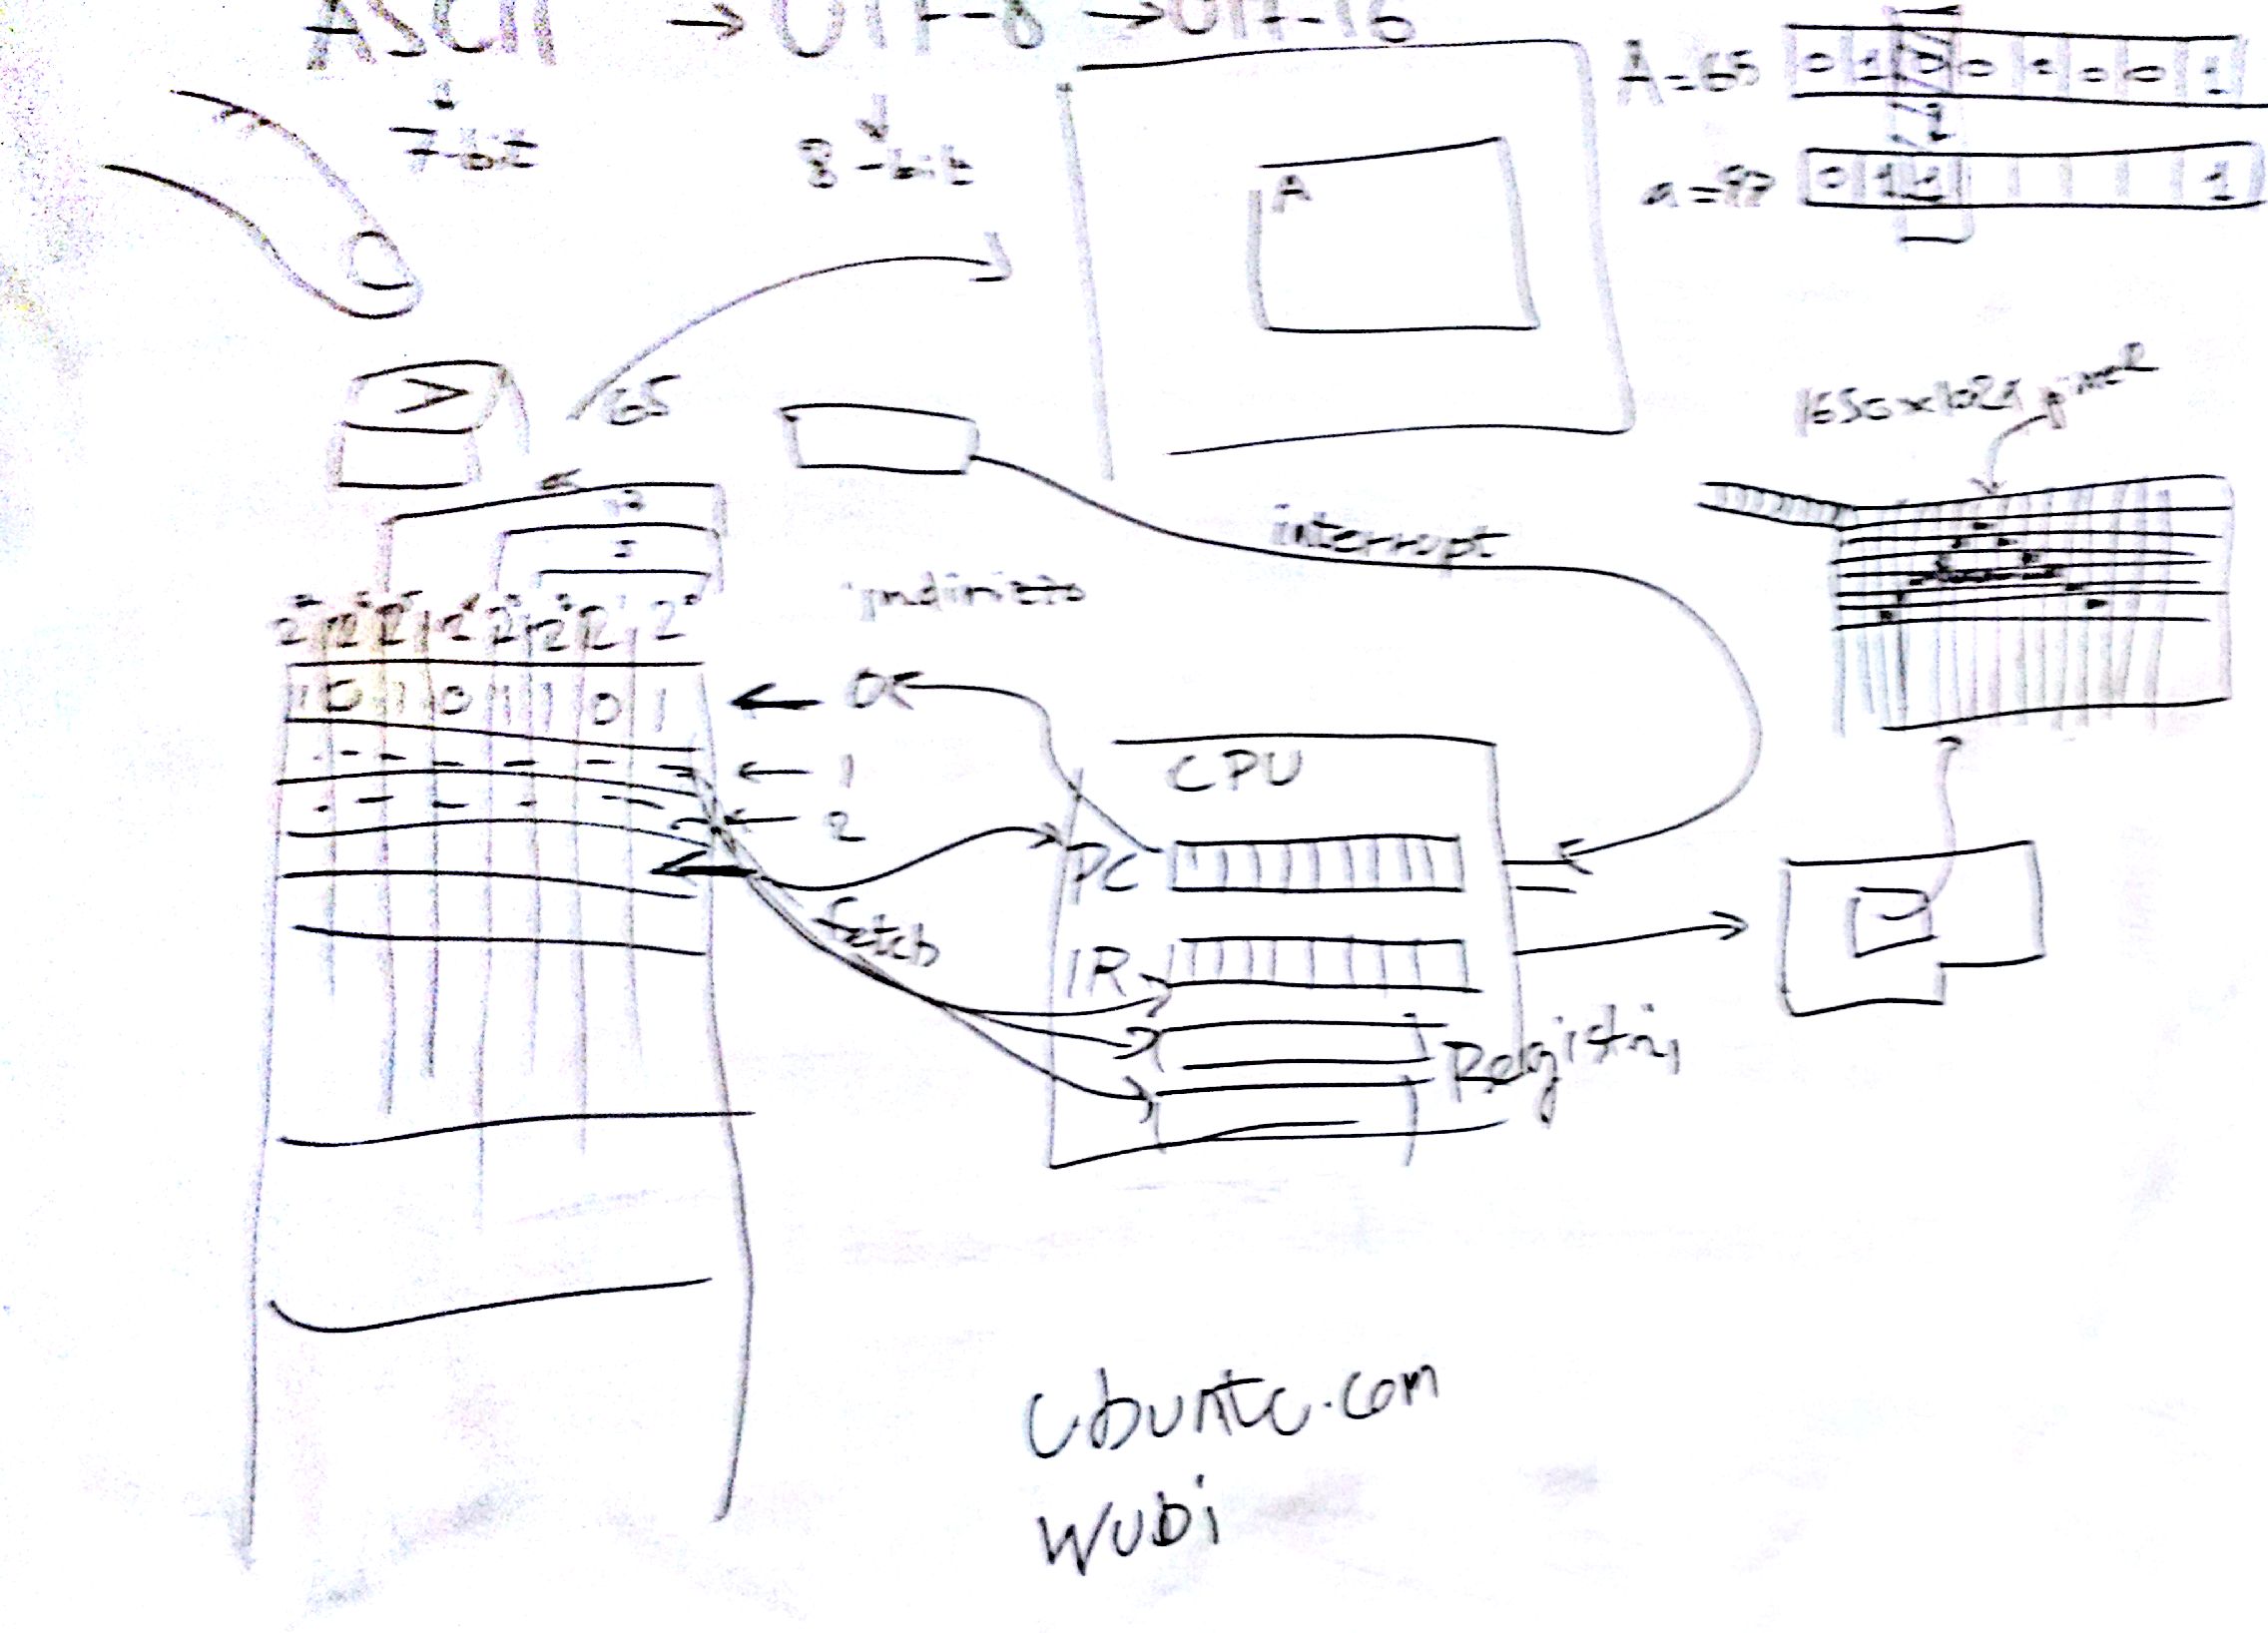 ASCII → UTF-8 → UTF-16
7-bit
8-bit
A=65 0 1 0 0 0 0 0 1
a=97 0 1 1 1
A
65
interrupt
indirizzo
2⁷ 2⁶ 2⁵ 2⁴ 2³ 2² 2¹ 2⁰
1 0 1 0 1 1 0 1 ← 0
← 1
← 2
CPU
PC
fetch
IR
Registri
ubuntu.com
Wubi